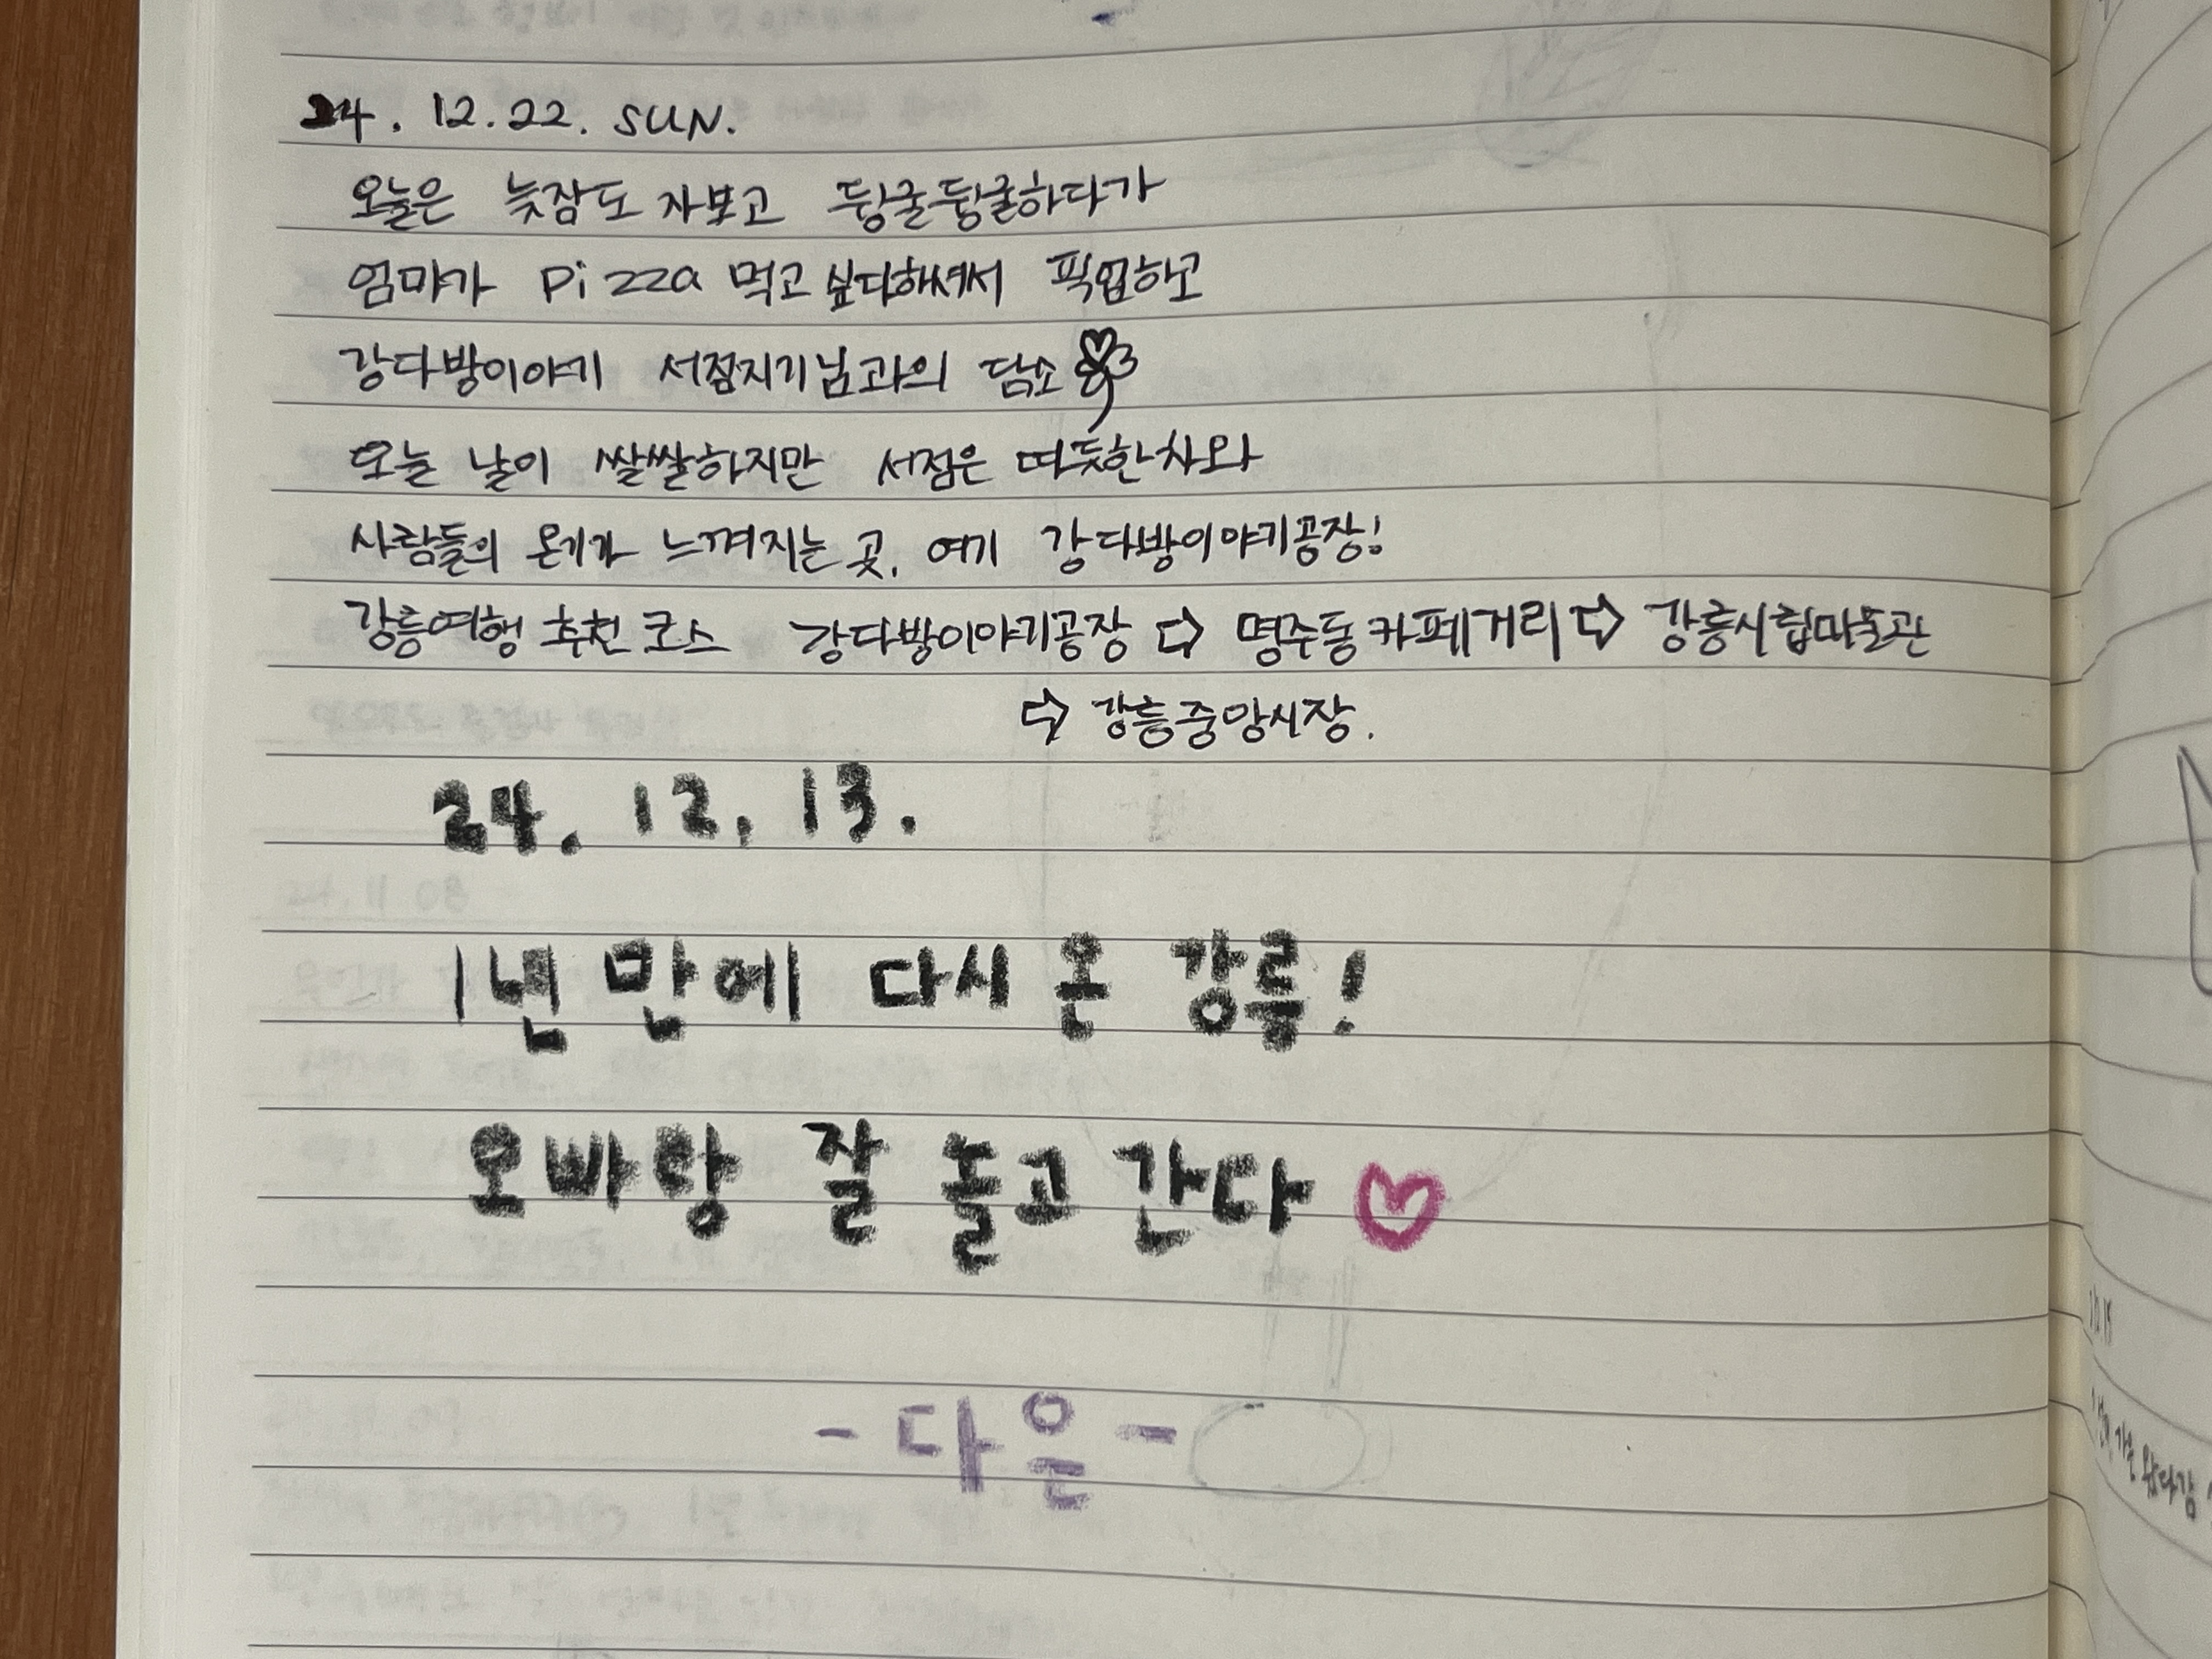 24. 12. 22. SUN.
오늘은 늦잠도 자보고 뒹굴뒹굴하다가
엄마가 pizza 먹고 싶다하셔서 픽업하고
강다방이야기 서점지기님과의 담소
오늘 날이 쌀쌀하지만 서점은 따듯한 차와
사람들의 온기가 느껴지는 곳, 여기 강다방이야기공장!
강릉여행 추천 코스 강다방이야기공장 ⇨ 명주동카페거리 ⇨ 강릉시립미술관
⇨ 강릉중앙시장.
24. 12. 13.
1년 만에 다시 온 강릉!
오빠랑 잘 놀고 간다 ♡
- 다은 -